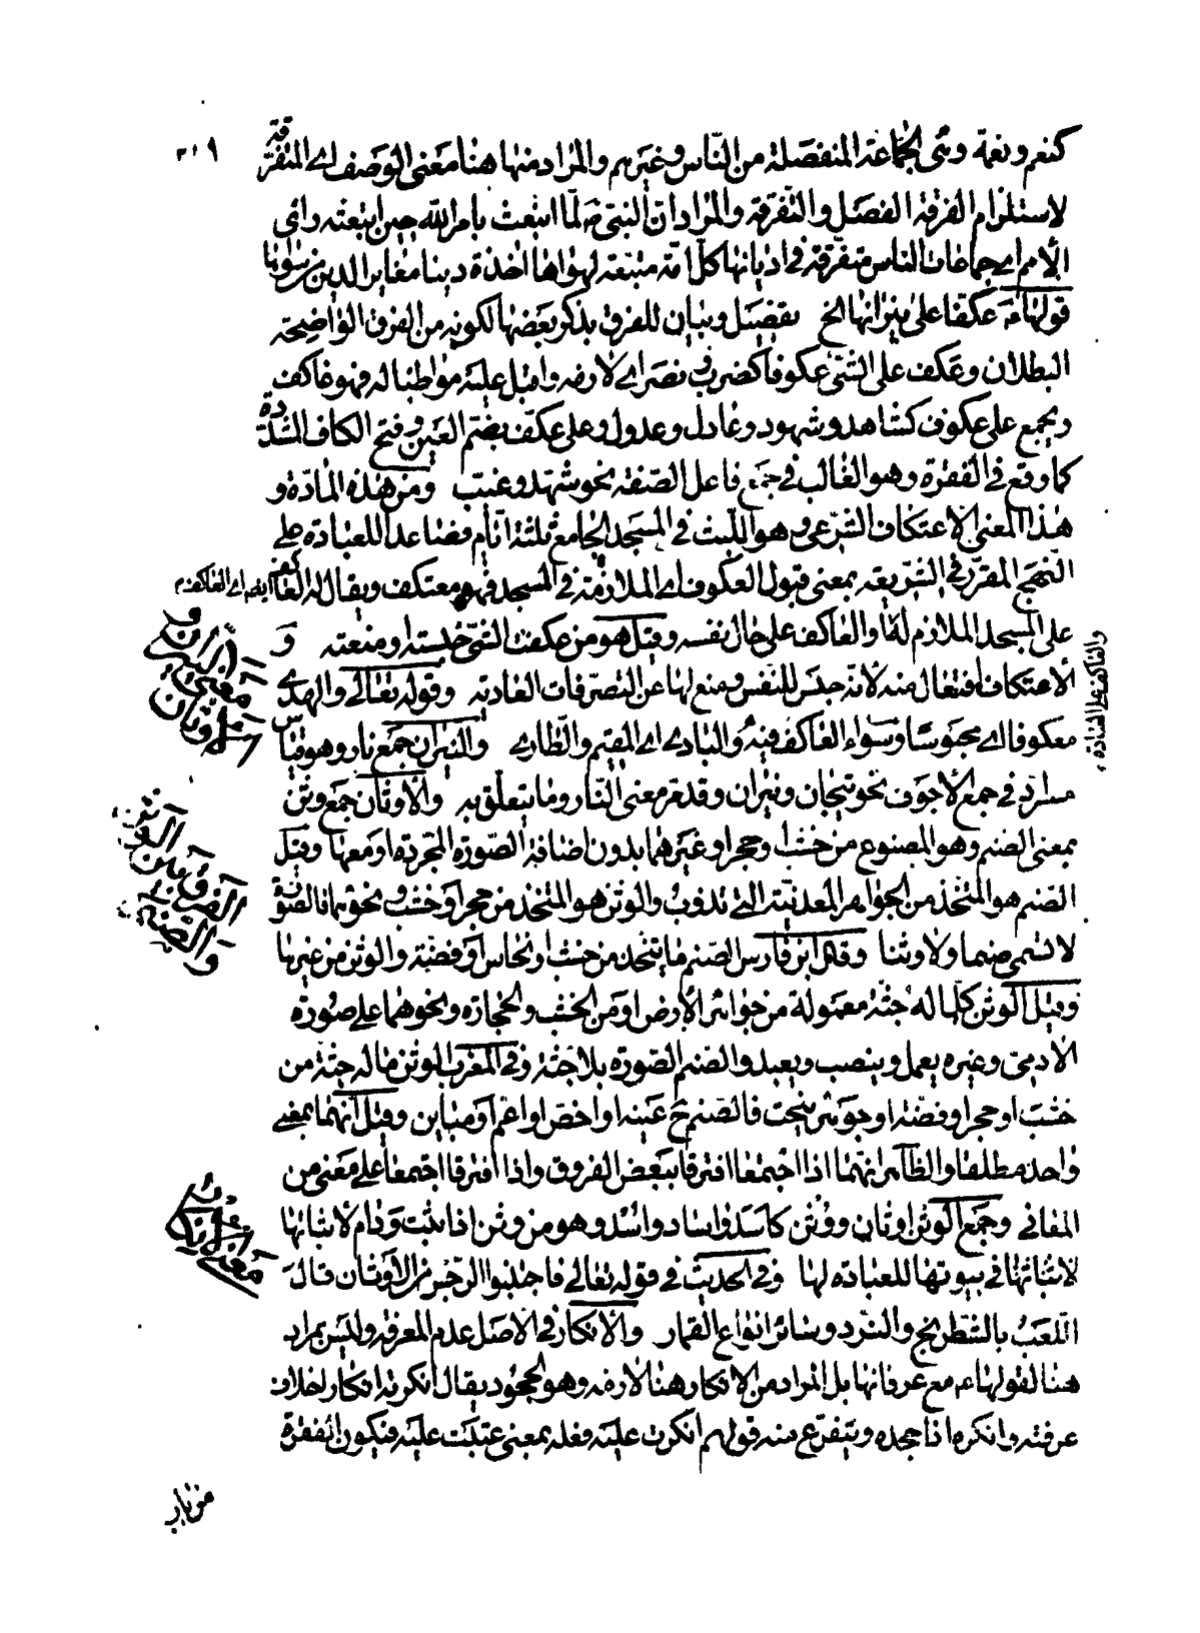 ٣١٩
كنعم ونعمة وهي الجماعة المنفصلة من الناس وغيرهم والمراد منها هنا معنى الوصف اي المتفرقة
لاستلزام الفرقة الفصل والتفرقة والمراد ان النبي ص لما ابتعث بامر الله حين ابتعثه رأى
الأمم اي جماعات الناس متفرقة في اديانها كل امة متبعة لهواها اخذة دينا مغاير الدين
قولها ع عكفا على نيرانها الخ تفصيل وبيان للفرق بذكر بعضها لكونه من الفرق الواضحة
البطلان وعكف على الشيء عكوفا كضرب ونصر اي لازمه واقبل عليه مواظبا له فهو عاكف
ويجمع على عكوف كشاهد وشهود وعادل وعدول وعلى عكف بضم العين وفتح الكاف المشددة
كما وقع في الفقرة وهو الغالب في جمع فاعل الصفة نحو شهد وغيب ومن هذه المادة و
هذا المعنى الاعتكاف الشرعي وهو اللبث في المسجد الجامع ثلثة ايام فصاعدا للعبادة على
النهج المقرر في الشريعة بمعنى قبول العكوف اي الملازمة في المسجد فهو معتكف ويقال له العاكف ايضا اي العاكف
على المسجد الملازم له والعاكف على حال نفسه وقيل هو من عكفت الشيء حبسته ومنعته و
الاعتكاف افتعال منه لانه حبس للنفس ومنع لها عن التصرفات العادية وقوله تعالى والهدي
معكوفا اي محبوسا وسواء العاكف فيه والباد اي المقيم والطاري والنيران جمع نار وهو قياس
مطرد في جمع الأجوف نحو تيجان ونيران وقد مر معنى النار وما يتعلق به والأوثان جمع وثن
بمعنى الصنم وهو المصنوع من خشب او حجر او غيرهما بدون اضافة الصورة المجردة او معها وقيل
الصنم هو المتخذ من الجواهر المعدنية التي تذوب والوثن هو المتخذ من حجر او خشب ونحوهما
لا تسمى صنما ولا وثنا وقال ابن فارس الصنم ما يتخذ من خشب او نحاس او فضة والوثن من غيرها
وقيل الوثن كلما له جثة معمولة من جواهر الأرض او من الخشب والحجارة ونحوهما على صورة
الادمي وغيره يعمل وينصب ويعبد والصنم الصورة بلا جثة وفي المغرب الوثن ما له جثة من
خشب او حجر او فضة او جوهر ينحت فالصنم ح عينه او اخص او اعم او مباين وقيل انهما بمعنى
واحد مطلقا والظاهر انهما اذا اجتمعا افترقا ببعض الفروق واذا افترقا اجتمعا على معنى من
المعاني وجمع الوثن اوثان ووثن كأسد واساد واسد وهو من وثن اذا ثبت ودام لاثباتها
لاثباتها في بيوتها للعبادة لها وفي الحديث في قوله تعالى فاجتنبوا الرجس من الاوثان قال
اللعب بالشطرنج والنرد وسائر انواع القمار والانكار في الاصل عدم المعرفة وليس بمراد
هنا لقولها ع مع عرفانها بل المراد من الانكار هنا لازمه وهو الجحود يقال انكرته انكارا خلاف
عرفته وانكره اذا جحده ويتفرع منه قولهم انكرت عليه فعله بمعنى عتبت عليه فيكون الفقرة
من باب
النيران و
معنى
الاوثان
الفرق بين الوثن
والصنم
معنى الانكار